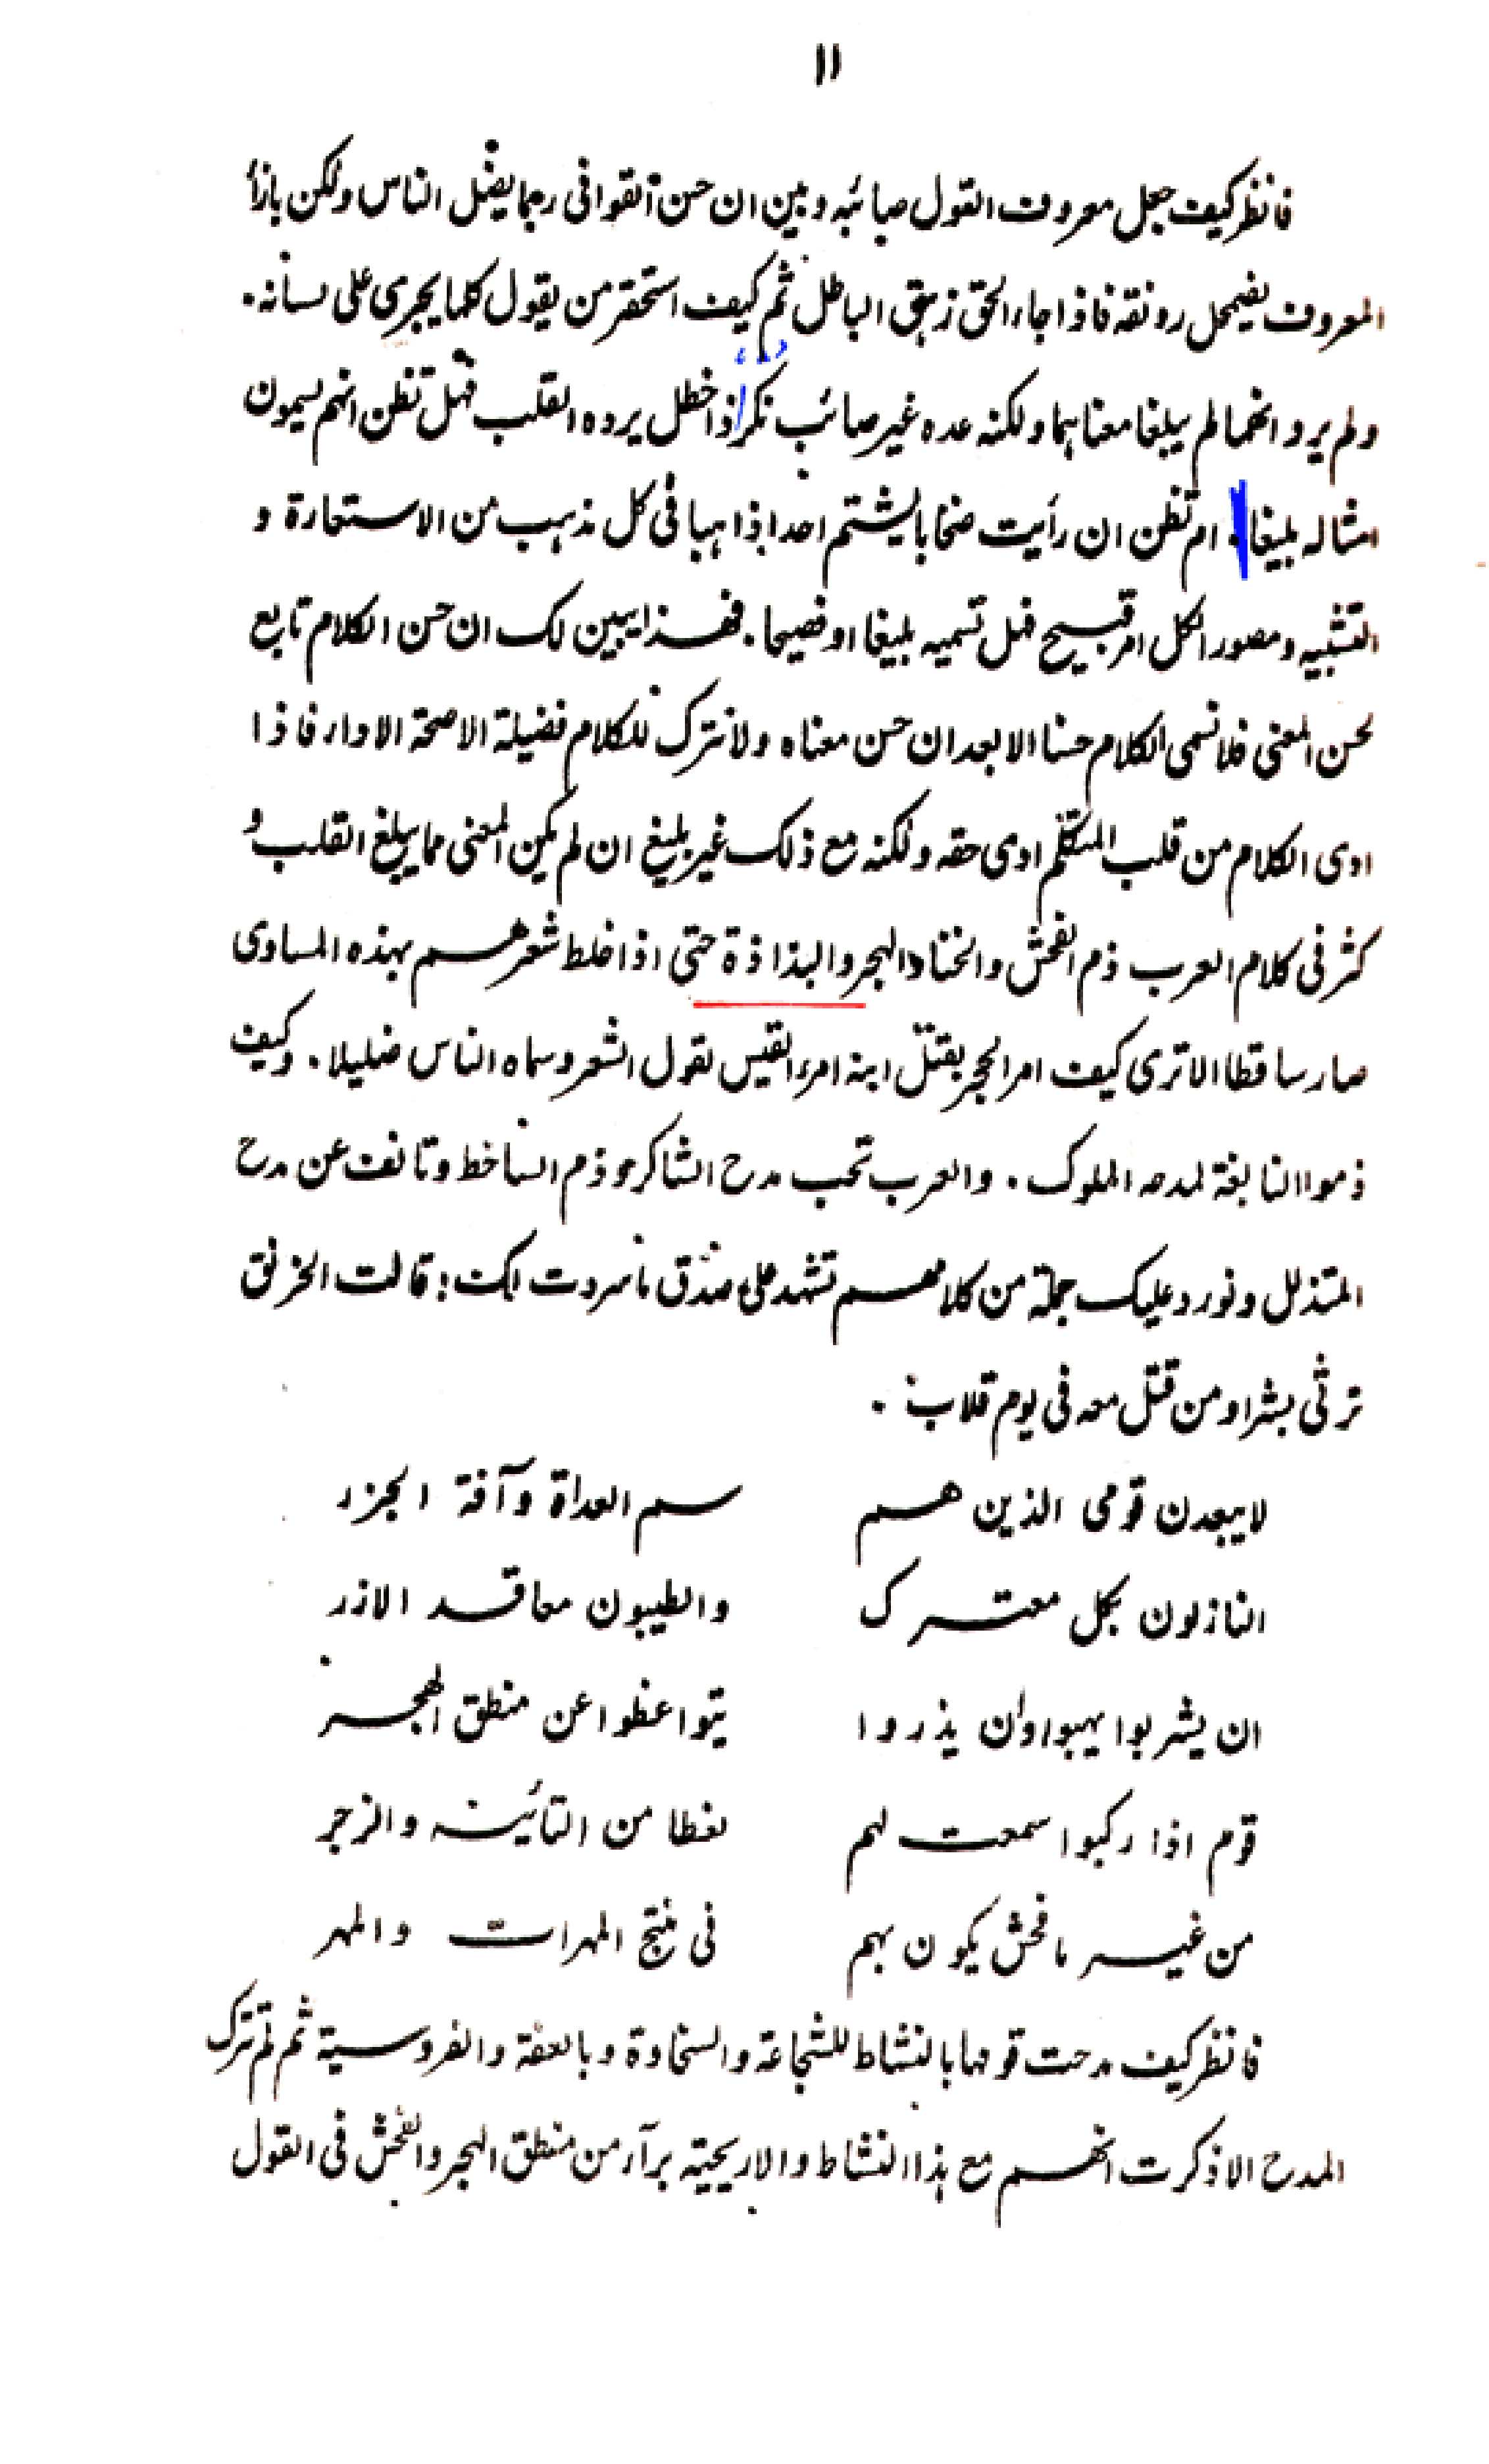 ۱۱
فانظر كيف جعل معروف القول صائبه وبين ان حسن القوافى ربما يضل الناس ولكن بازأ
المعروف يضمحل رونقه فاذا جاء الحق زهق الباطل ثم كيف استحقر من يقول كلما يجرى على لسانه.
ولم يرد انهما لم يبلغا معناهما ولكنه عده غير صائب نكرا ذا خطل يرده القلب فهل تظن انهم يسمون
امثاله بليغا. ام تظن ان رأيت صخابا يشتم احدا ذاهبا فى كل مذهب من الاستعارة و
التشبيه ومصور الكل امر قبيح فهل تسميه بليغا او فصيحا. فهذا يبين لك ان حسن الكلام تابع
لحسن المعنى فلا نسمى الكلام حسنا الا بعد ان حسن معناه ولا نترك للكلام فضيلة الا صحة الاداء فاذا
ادى الكلام من قلب المتكلم ادى حقه ولكنه مع ذلك غير بليغ ان لم يكن المعنى مما يبلغ القلب و
كثر فى كلام العرب ذم الفحش والخنا والهجر والبذاذة حتى اذا خلط شعرهم بهذه المساوى
صار ساقطا الا ترى كيف امر الحجر بقتل ابنه امرء القيس لقول الشعر وسماه الناس ضليلا. وكيف
ذموا النابغة لمدحه الملوك. والعرب تحب مدح الشاكر وذم الساخط وتانف عن مدح
المتذلل ونورد عليك جملة من كلامهم تشهد على صدق ما سردت لك: قالت الخرنق
ترثى بشرا ومن قتل معه فى يوم قلاب.
لا يبعدن قومى الذين هم سم العداة وآفة الجزر
النازلون بكل معترك والطيبون معاقد الازر
ان يشربوا يهبوا وان يذروا يتواعظوا عن منطق الهجر
قوم اذا ركبوا سمعت لهم لغطا من التائيه والزجر
من غير ما فحش يكون بهم فى منتج المهرات والمهر
فانظر كيف مدحت قومها بالنشاط للشجاعة والسخاوة وبالعفة والفروسية ثم لم تترك
المدح الا ذكرت انهم مع هذا النشاط والاريحية برآء من منطق الهجر والفحش فى القول